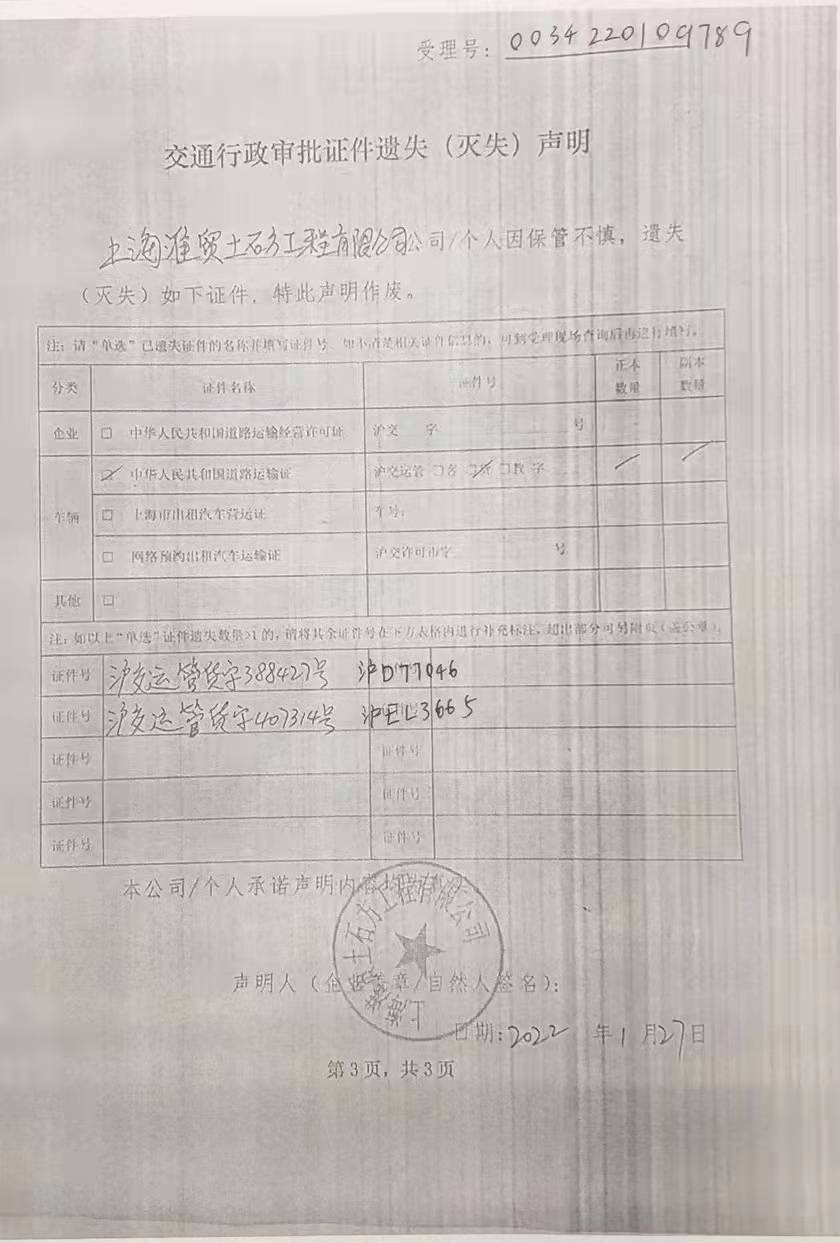 受理号：0034220109789
交通行政审批证件遗失（灭失）声明
上海淮贸土石方工程有限公司公司/个人因保管不慎，遗失
（灭失）如下证件，特此声明作废。
注：请“单选”已遗失证件的名称并填写证件号，如不清楚相关证件信息的，可到受理现场查询后再进行填写。
分类 证件名称 证件号 正本数量 副本数量
企业 □ 中华人民共和国道路运输经营许可证 沪交 字 号
车辆 ☑ 中华人民共和国道路运输证 沪交运管 □客 ☑货 □教 字 / /
□ 上海市出租汽车营运证 车号：
□ 网络预约出租汽车运输证 沪交许可市字 号
其他 □
注：如以上“单选”证件遗失数量>1的，请将其余证件号在下方表格内进行补充标注，超出部分可另附页（盖公章）。
证件号 沪交运管货字388427号 沪D77046
证件号 沪交运管货字407314号 沪EL3665
证件号 证件号
证件号 证件号
证件号 证件号
本公司/个人承诺声明内容均
土石方工程有限公司
声明人（企业盖章/自然人签名）：
日期：2022 年1月27日
第3页，共3页